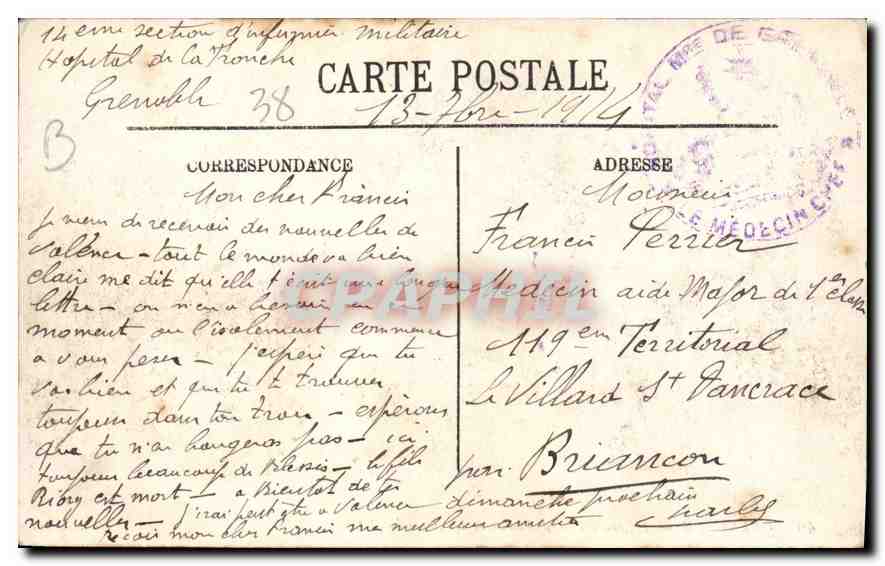 14eme section d'infirmier militaire
Hopital de La Tronche
Grenoble 38
CARTE POSTALE
13-7bre-1914
B
CORRESPONDANCE
ADRESSE
HOPITAL Mre DE GRENOBLE
LE MÉDECIN CHEF
Mon cher Francis
je viens de recevoir des nouvelles de
Valence - tout le monde va bien
claire me dit qu'elle t'écrit une longue
lettre - on en a besoin en ce
moment ou l'isolement commence
a vous peser - j'espère que tu
vas bien et que tu te trouves
toujours dans ton trou - espérons
que tu n'en bougeras pas - ici
toujours beaucoup de Blessés - le fils
Riory est mort - a Bientot de tes
nouvelles - j'irai peut etre a Valence dimanche prochain
reçois mon cher Francis ma meilleure amitié
Charles
Monsieur
Francis Perrier
Medecin aide Major de 1ere classe
119em Territorial
Le Villard St Pancrace
par Briancon
CPAPHIL